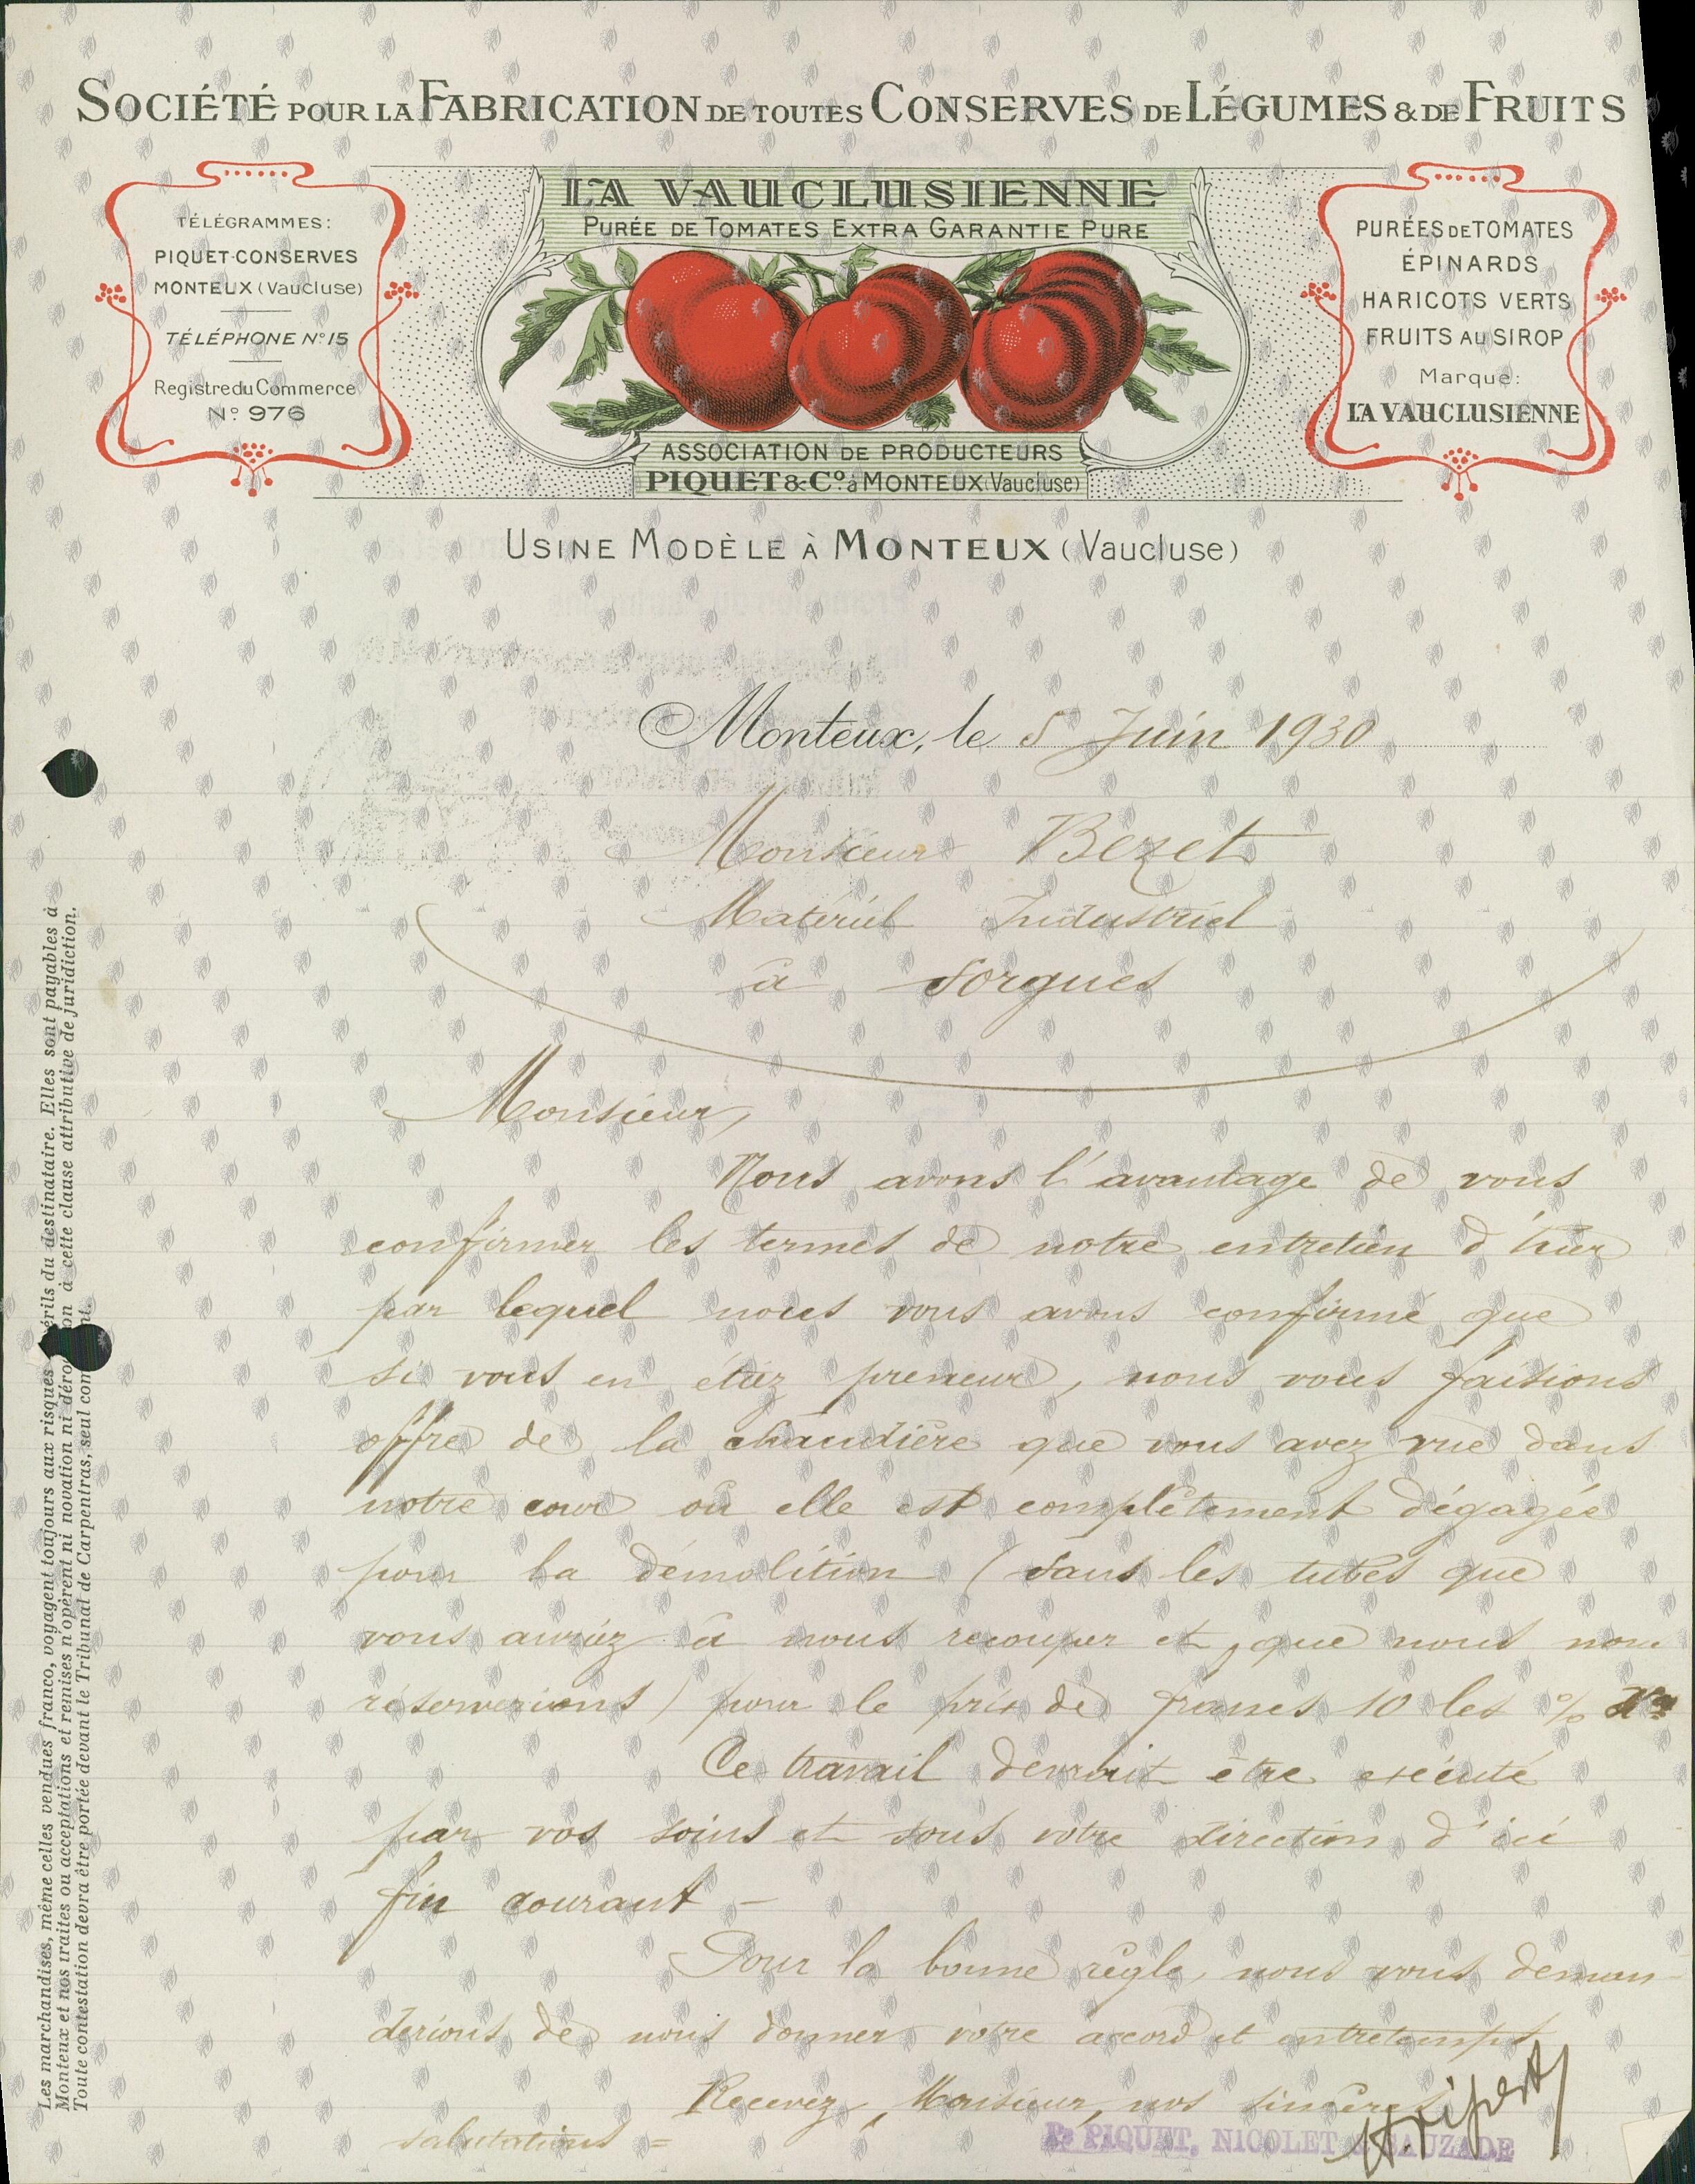 SOCIÉTÉ POUR LA FABRICATION DE TOUTES CONSERVES DE LÉGUMES & DE FRUITS
TÉLÉGRAMMES:
PIQUET-CONSERVES
MONTEUX (Vaucluse)
TÉLÉPHONE N° 15
Registre du Commerce
N° 976
LA VAUCLUSIENNE
PURÉE DE TOMATES EXTRA GARANTIE PURE
ASSOCIATION DE PRODUCTEURS
PIQUET & Co. à MONTEUX (Vaucluse)
PURÉES DE TOMATES
ÉPINARDS
HARICOTS VERTS
FRUITS AU SIROP
Marque:
LA VAUCLUSIENNE
USINE MODÈLE À MONTEUX (Vaucluse)
Monteux, le 5 Juin 1930
Monsieur Bezet
Matériel Industriel
à Sorgues
Monsieur,
Nous avons l'avantage de vous
confirmer les termes de notre entretien d'hier
par lequel nous vous avons confirmé que
si vous en étiez preneur, nous vous faisions
offre de la chaudière que vous avez vue dans
notre cour où elle est complètement dégagée
pour la démolition (sans les tubes que
vous auriez à nous recouper et que nous nous
réserverions) pour le prix de francs 10 les %
Ce travail devrait être exécuté
par vos soins et sous votre direction d'ici
fin courant -
Pour la bonne règle, nous vous deman-
derions de nous donner votre accord et entretemps
Recevez, Monsieur, nos sincères
salutations =
Pr PIQUET, NICOLET & SAUZADE
Les marchandises, même celles vendues franco, voyagent toujours aux risques périls du destinataire. Elles sont payables à
Monteux et nos traites ou acceptations et remises n'opèrent ni novation ni à cette clause attributive de juridiction.
Toute contestation devra être portée devant le Tribunal de Carpentras, seul